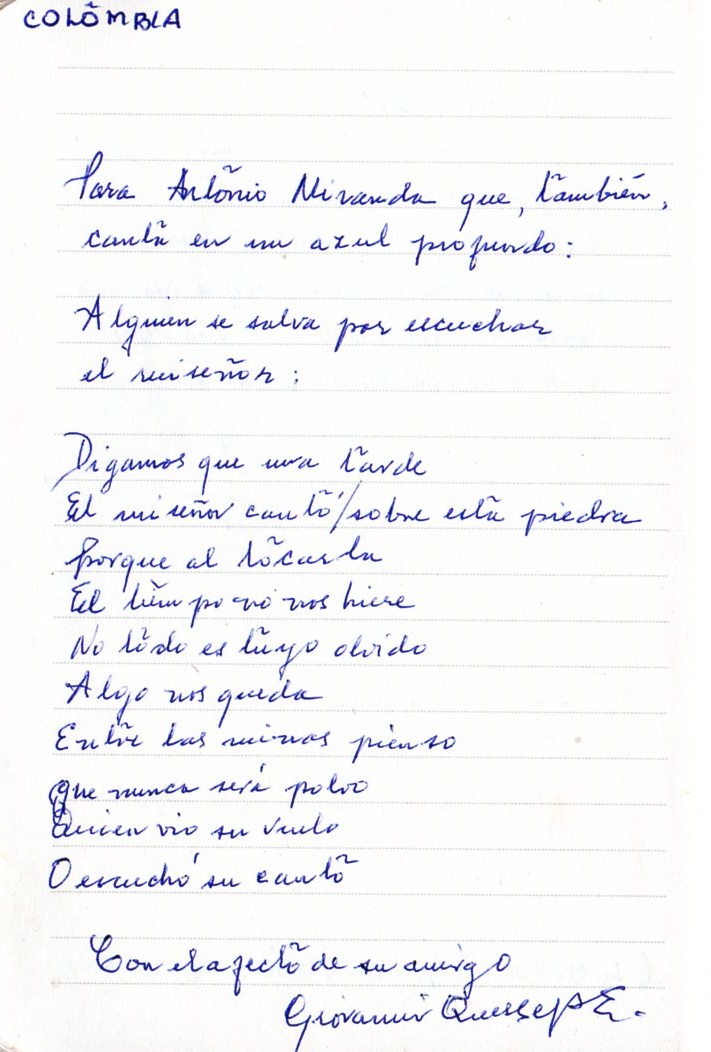 COLÔMBIA
Para António Miranda que, también,
canta en un azul profundo:
Alguien se salva por escuchar
el ruiseñor:
Digamos que una tarde
El ruiseñor cantó/sobre esta piedra
Porque al tocarla
El tiempo no nos hiere
No todo es tuyo olvido
Algo nos queda
Entre las ruinas pienso
Que nunca será polvo
Quien vio su vuelo
O escuchó su canto
Con el afecto de su amigo
Giovanni Quessep E.